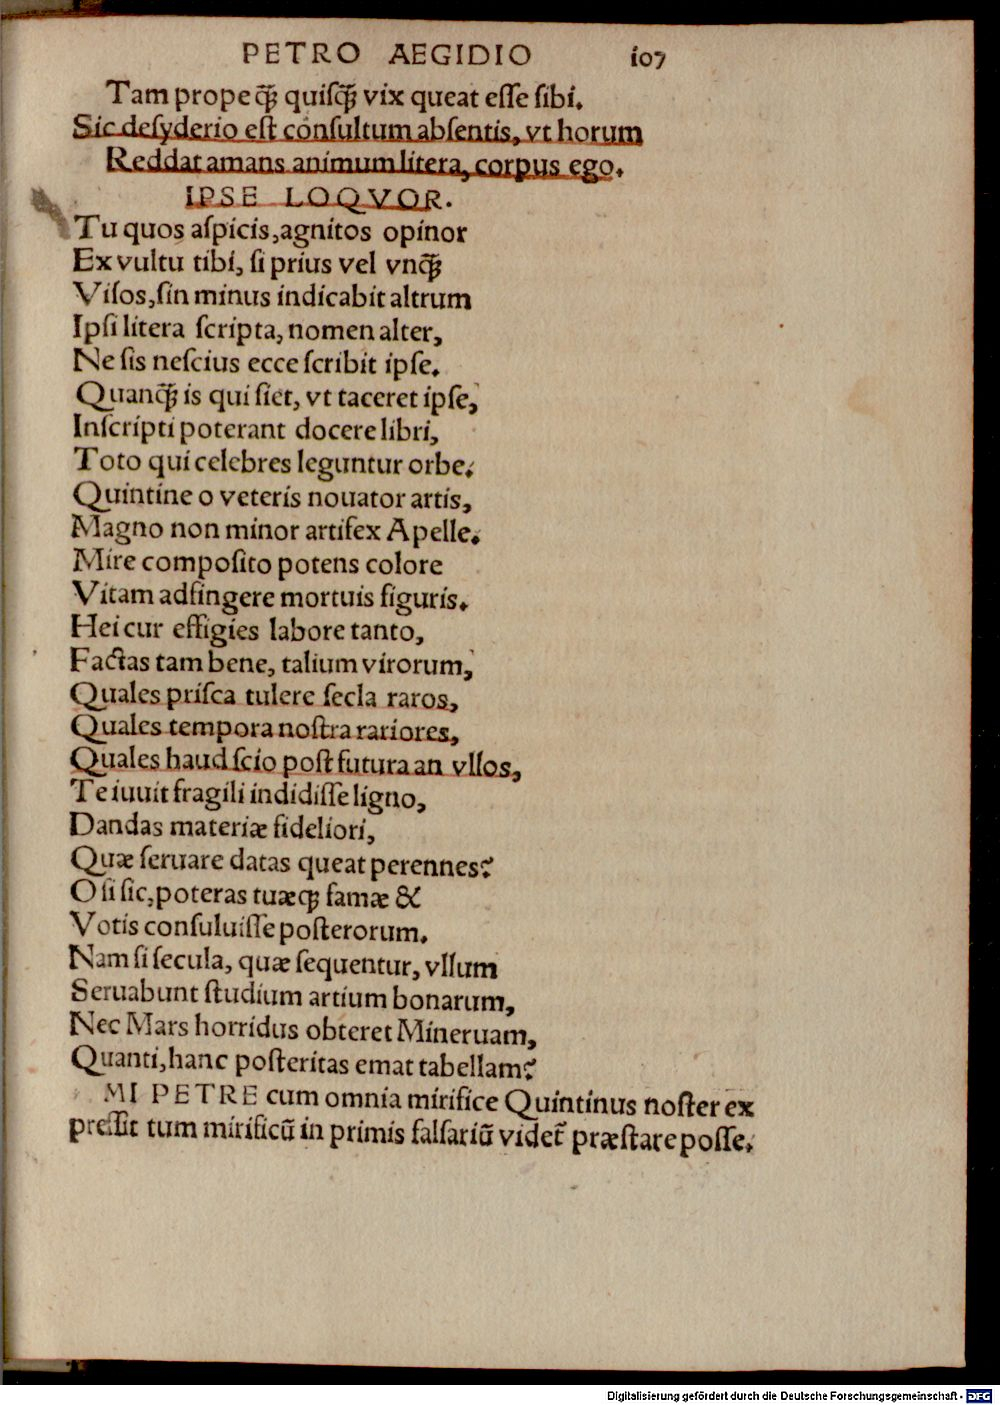 PETRO AEGIDIO 107
Tam prope q̃ꝫ quiſq̃ꝫ vix queat eſſe ſibi.
Sic deſyderio eſt conſultum abſentis, vt horum
Reddat amans animum litera, corpus ego.
IPSE LOQVOR.
Tu quos aſpicis, agnitos opinor
Ex vultu tibi, ſi prius vel vnq̃ꝫ
Viſos, ſin minus indicabit altrum
Ipſi litera ſcripta, nomen alter,
Ne ſis neſcius ecce ſcribit ipſe.
Quanq̃ꝫ is qui ſiet, vt taceret ipſe,
Inſcripti poterant docere libri,
Toto qui celebres leguntur orbe.
Quintine o veteris nouator artis,
Magno non minor artifex Apelle.
Mire compoſito potens colore
Vitam adfingere mortuis figuris.
Hei cur effigies labore tanto,
Factas tam bene, talium virorum,
Quales priſca tulere ſecla raros,
Quales tempora noſtra rariores,
Quales haud ſcio poſt futura an vllos,
Te iuuit fragili indidiſſe ligno,
Dandas materiæ fideliori,
Quæ ſeruare datas queat perennes?
O ſi ſic, poteras tuæqꝫ famæ &
Votis conſuluiſſe poſterorum.
Nam ſi ſecula, quæ ſequentur, vllum
Seruabunt ſtudium artium bonarum,
Nec Mars horridus obteret Mineruam,
Quanti, hanc poſteritas emat tabellam?
MI PETRE cum omnia mirifice Quintinus noſter ex
preſſit tum mirificū in primis falſariū videt̃ præſtare poſſe.
Digitalisierung gefördert durch die Deutsche Forschungsgemeinschaft - DFG